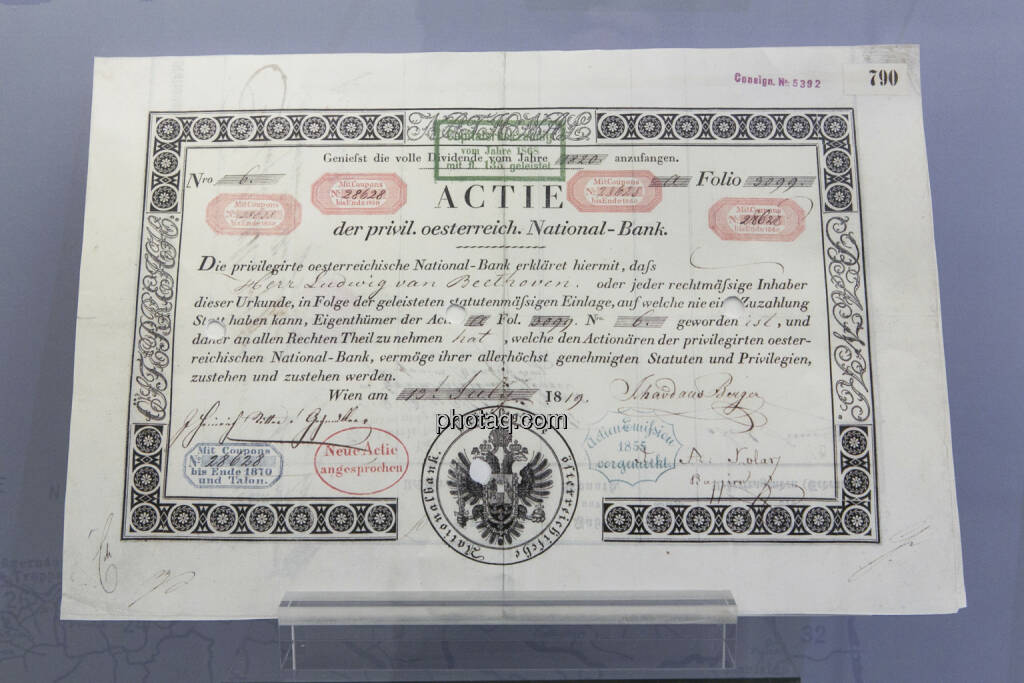 Consign. No. 5392
790
Capitals-Einzahlung
vom Jahre 1868
mit fl. 135 geleistet
Geniefst die volle Dividende vom Jahre 1820. anzufangen.
Nro 6. a Folio 3099.
Mit Coupons
No. 28628
bis Ende 1850
Mit Coupons
No. 28628
bis Ende 1860
ACTIE
der privil. oesterreich. National-Bank.
Die privilegirte oesterreichische National-Bank erkläret hiermit, dafs
Herr Ludwig van Beethoven. oder jeder rechtmäfsige Inhaber
dieser Urkunde, in Folge der geleisteten statutenmäfsigen Einlage, auf welche nie eine Zuzahlung
Statt haben kann, Eigenthümer der Act. a Fol. 3099. No. 6. geworden ist, und
daher an allen Rechten Theil zu nehmen hat, welche den Actionären der privilegirten oester-
reichischen National-Bank, vermöge ihrer allerhöchst genehmigten Statuten und Privilegien,
zustehen und zustehen werden.
Wien am 13t July 1819.
Mit Coupons
No. 28628
bis Ende 1870
und Talon.
Neue Actie
angesprochen
Nationalbank. österreichische
Actien Emission
1855
vorgemerkt
photaq.com
32